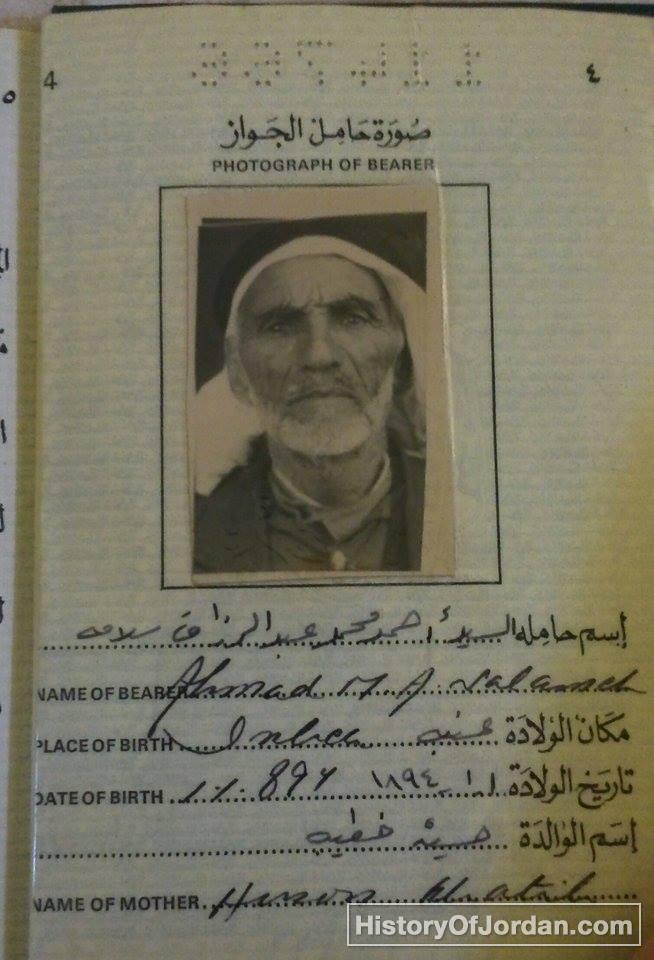 4 ٤
صُورَة حَامِل الجَواز
PHOTOGRAPH OF BEARER
إسم حامِله السيد أحمد محمد عبد الرزاق سلامه
NAME OF BEARER Ahmad M A Salameh
مَكان الوِلادَة عنبه
PLACE OF BIRTH
تاريَخ الولادَة ١ـ١ـ١٨٩٤
DATE OF BIRTH 1/1/894
إسَم الوَالدَة
NAME OF MOTHER Khatib
HistoryOfJordan.com